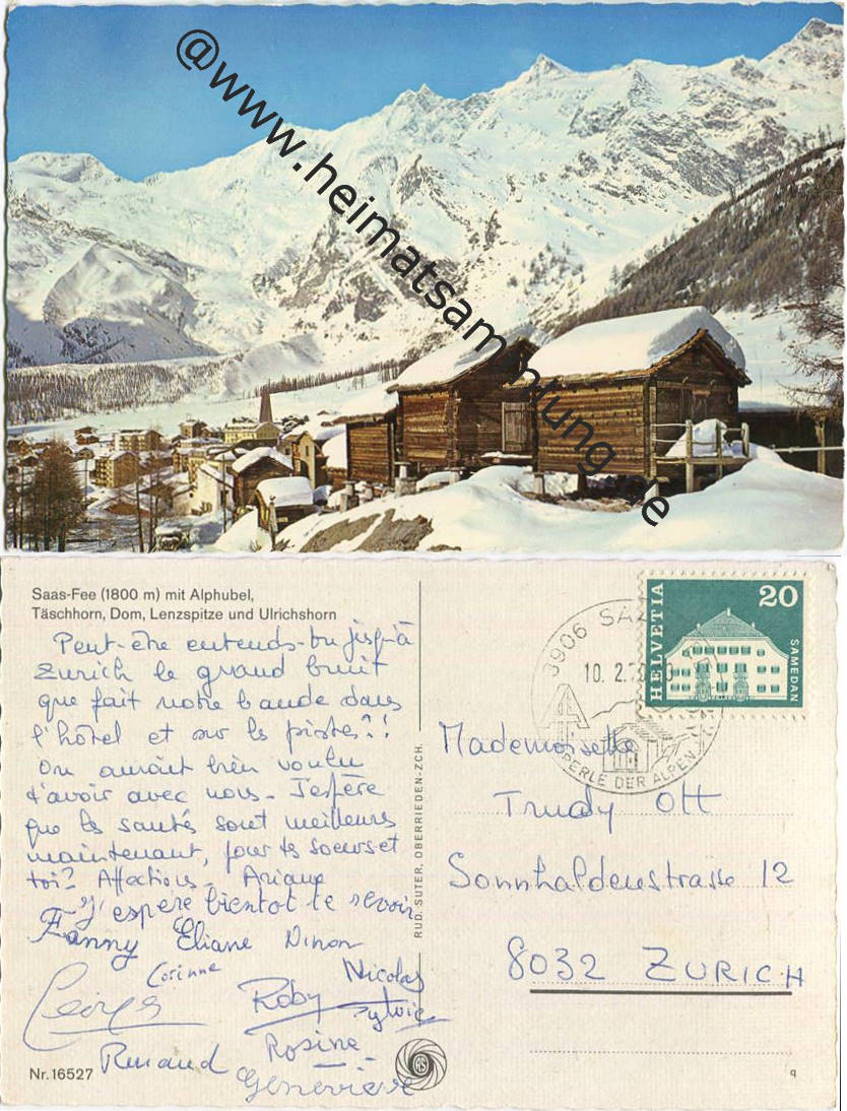 @www.heimatsammlung.de
Saas-Fee (1800 m) mit Alphubel,
Täschhorn, Dom, Lenzspitze und Ulrichshorn
Peut-être entends-tu jusqu'à
Zurich le grand bruit
que fait notre bande dans
l'hôtel et sur les pistes?!
On aurait bien voulu
t'avoir avec nous. J'espère
que les santés sont meilleures
maintenant, pour tes soeurs et
toi? Affections. Ariane
J'espère bientôt te revoir
Fanny Eliane Ninon
Corinne Nicolas
Georges Roby Sylvie
Renaud Rosine
Geneviève
Nr. 16527
RUD. SUTER, OBERRIEDEN-ZCH.
3906 SAAS
10. 2.
PERLE DER ALPEN
HELVETIA
20
SAMEDAN
Mademoiselle
Trudy Ott
Sonnhaldenstrasse 12
8032 ZURICH
q